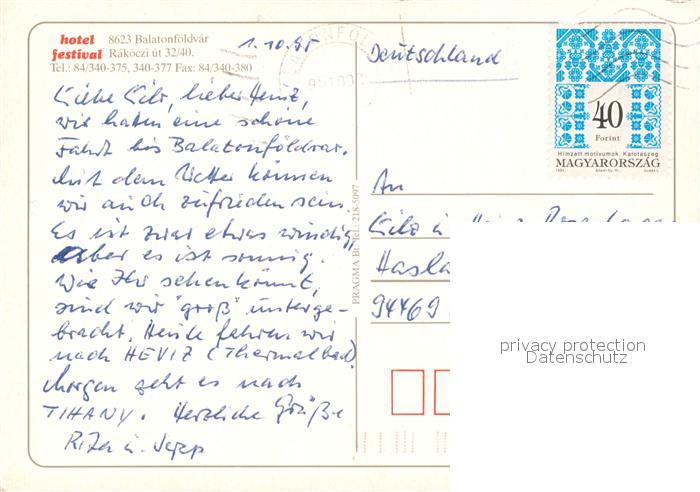 hotel festival
8623 Balatonföldvár
Rákóczi út 32/40.
Tel.: 84/340-375, 340-377 Fax: 84/340-380
1.10.95
Deutschland
40
Forint
Hímzett motívumok, Kalotaszeg
MAGYARORSZÁG
lieber Heinz,
wir hatten eine schöne
Fahrt bis Balatonföldvar.
Mit dem Wetter können
wir auch zufrieden sein.
Es ist zwar etwas windig,
aber es ist sonnig.
Wie Ihr sehen könnt,
sind wir "groß" unterge-
bracht. Heute fahren wir
nach HEVIZ (Thermalbad)
Morgen geht es nach
TIHANY. Herzliche Grüße
Rita u. Sepp
PRAGMA Bt. Tel.: 218-5097
An
Hasla
94469
privacy protection
Datenschutz